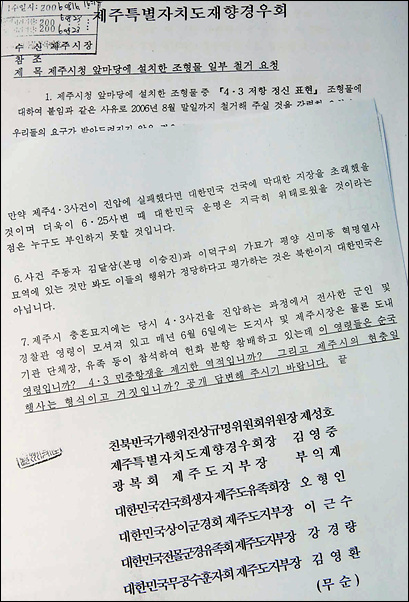 제주특별자치도재향경우회
수 신 제주시장
참 조
제 목 제주시청 앞마당에 설치한 조형물 일부 철거 요청
1. 제주시청 앞마당에 설치한 조형물 중 『4·3 저항 정신 표현』 조형물에
대하여 붙임과 같은 사유로 2006년 8월 말일까지 철거해 주실 것을
우리들의 요구가
만약 제주4·3사건이 진압에 실패했다면 대한민국 건국에 막대한 지장을 초래했을
것이며 더욱이 6·25사변 때 대한민국 운명은 지극히 위태로웠을 것이라는
점은 누구도 부인하지 못할 것입니다.
6.사건 주동자 김달삼(본명 이승진)과 이덕구의 가묘가 평양 신미동 혁명열사
묘역에 있는 것만 봐도 이들의 행위가 정당하다고 평가하는 것은 북한이지 대한민국은
아닙니다.
7.제주시 충혼묘지에는 당시 4·3사건을 진압하는 과정에서 전사한 군인 및
경찰관 영령이 모셔져 있고 매년 6월 6일에는 도지사 및 제주시장은 물론 도내
기관 단체장, 유족 등이 참석하여 헌화 분향 참배하고 있는데 이 영령들은 순국
영령입니까? 4·3 민중항쟁을 제지한 역적입니까? 그리고 제주시의 현충일
행사는 형식이고 거짓입니까? 공개 답변해 주시기 바랍니다. 끝
친북반국가행위진상규명위원회위원장 제성호
제주특별자치도재향경우회장 김영중
광복회 제주도지부장 부의재
대한민국건국희생자 제주도유족회장 오형인
대한민국상이군경회 제주도지부장 이근수
대한민국전몰군경유족회 제주도지부장 강경량
대한민국무공수훈자회 제주도지부장 김영환
(무순)